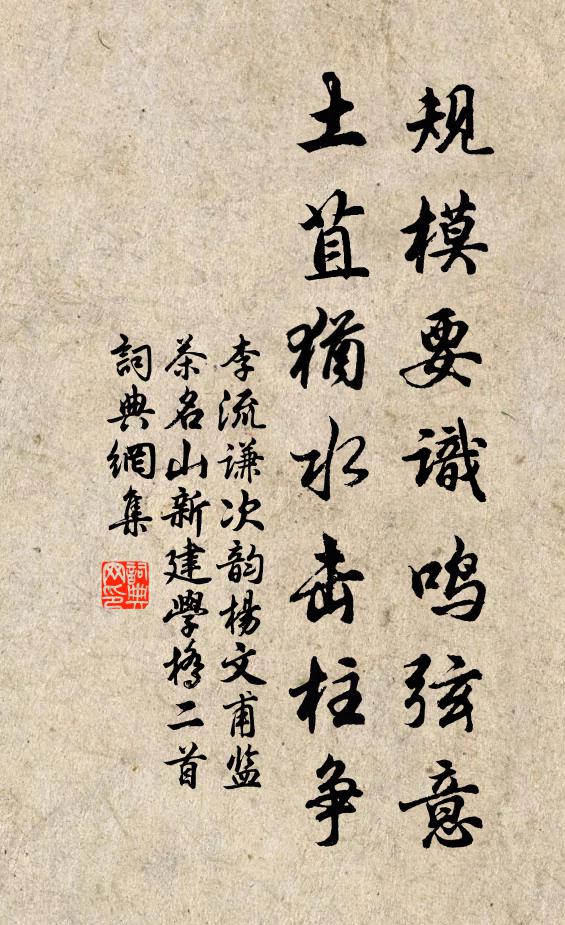 规模要識鸣弦意
土苴猶水击柱争
李流谦次韵楊文甫监
茶名山新建學橋二首
詞典網集
詞典网印